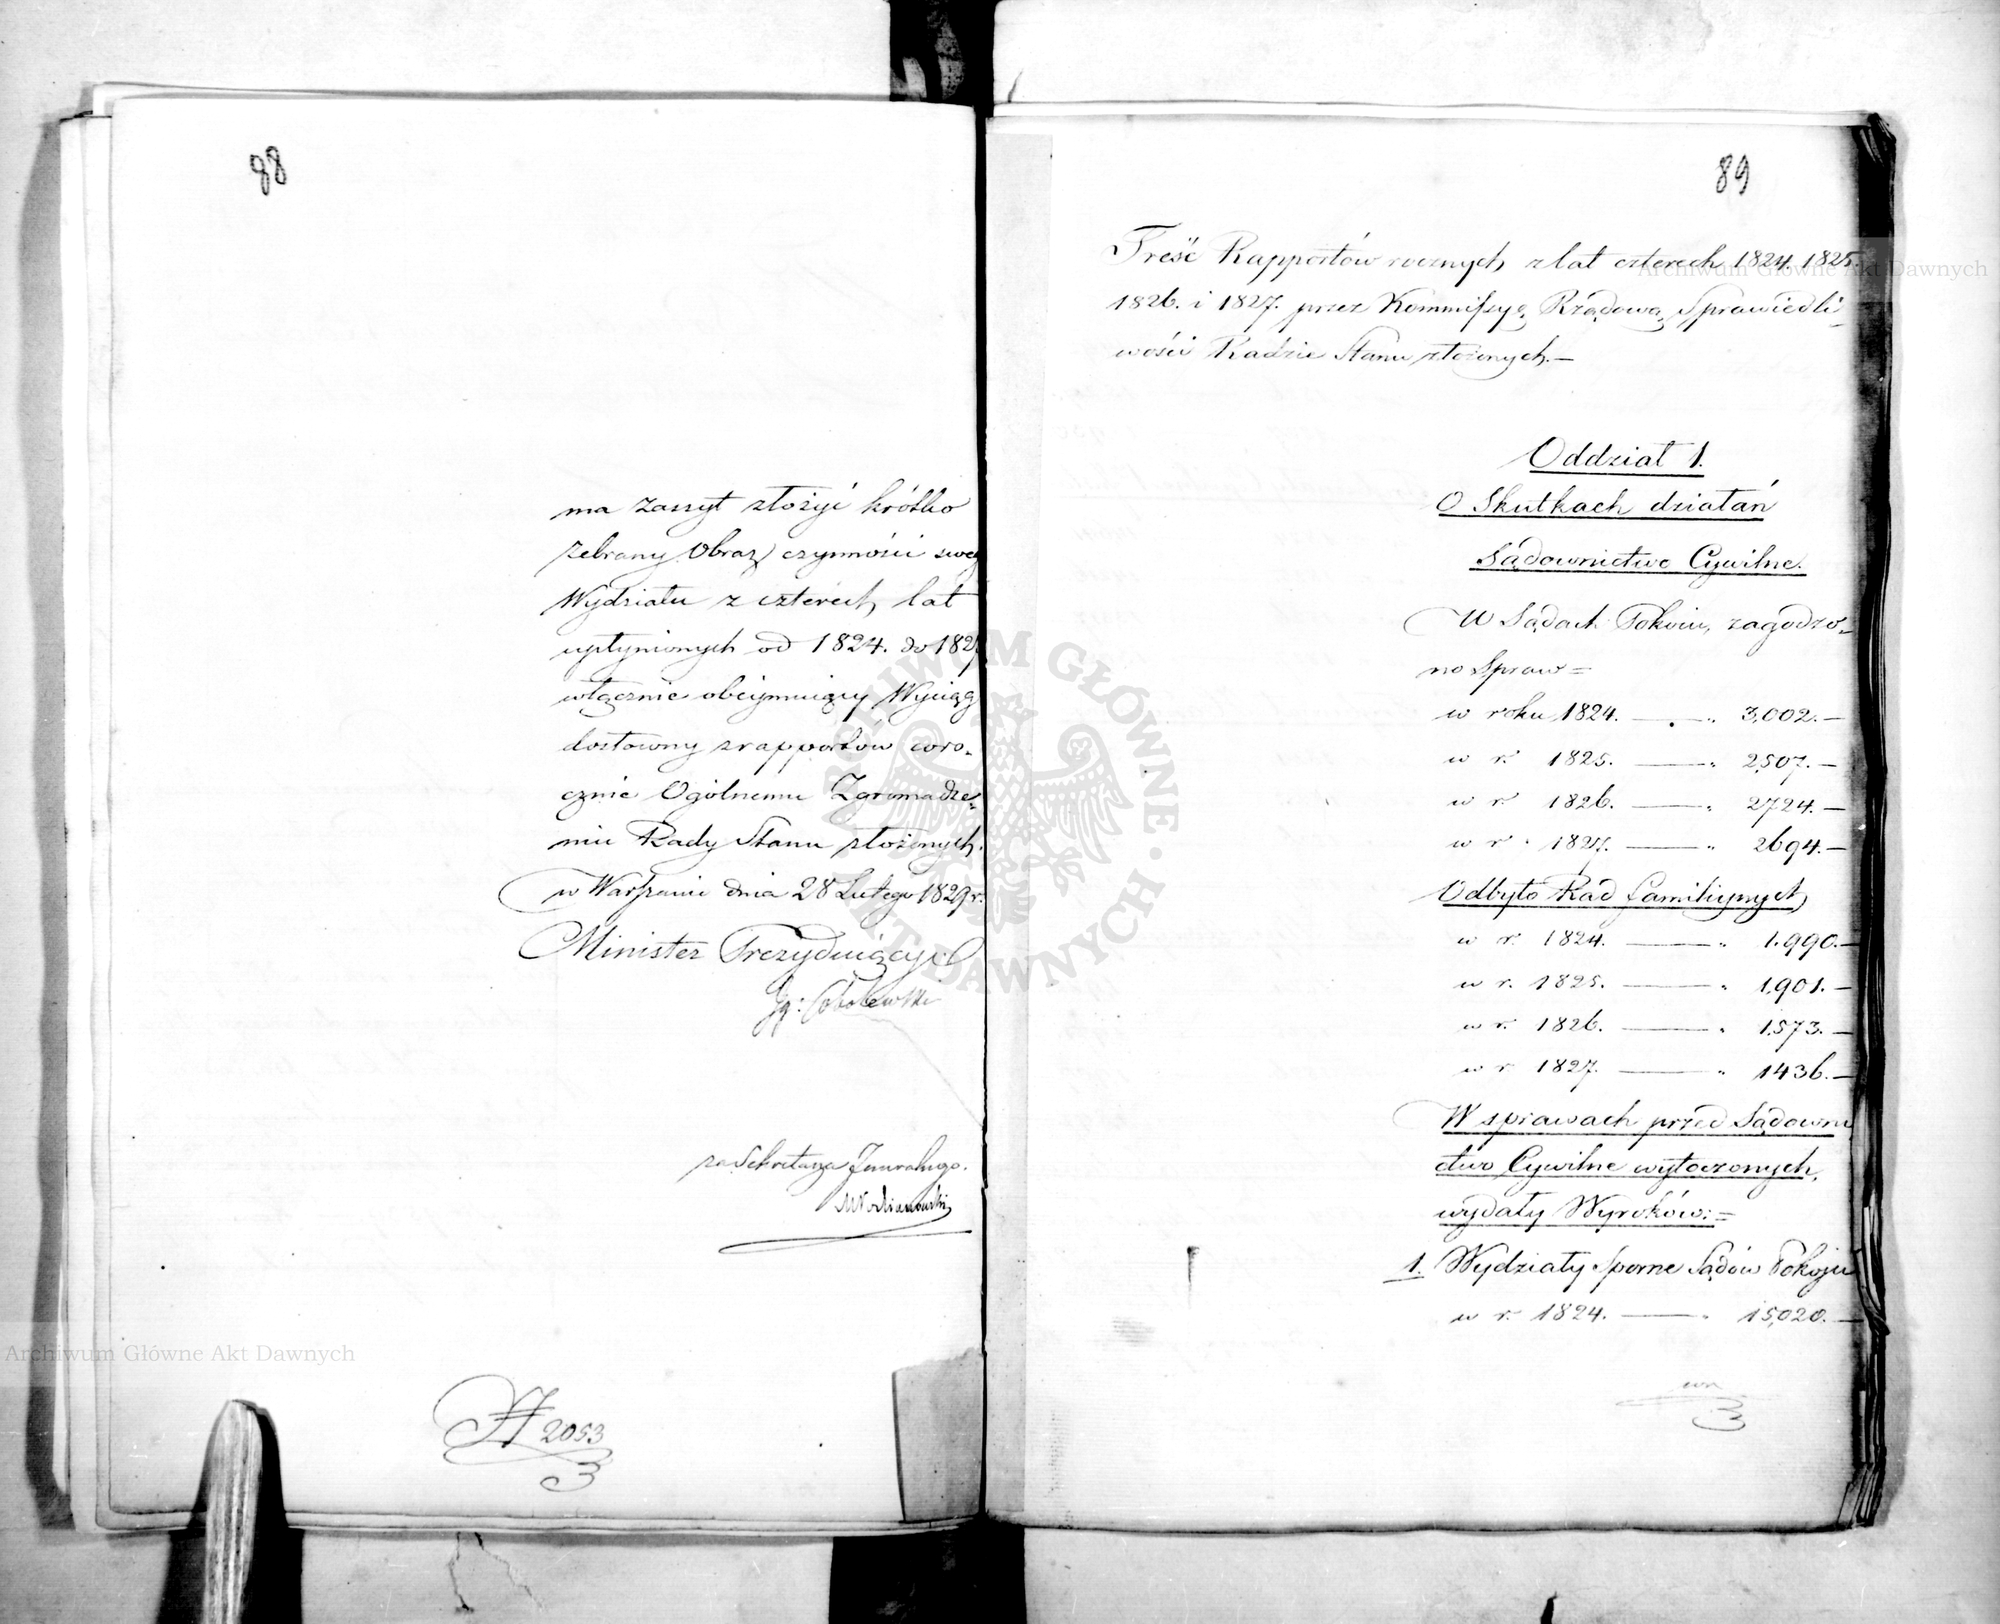 88
ma zaszyt złożyć krótko
zebrany Obraz czynności swey
Wydziału z czterech lat
upłynionych od 1824. do 1827
włącznie obeymuiący Wyciąg
dosłowny z rapportów coro-
cznie Ogólnemu Zgromadze-
niu Rady Stanu złożonych.
w Warszawie dnia 28 Lutego 1829 r.
Minister Prezyduiący
Ig: Sobolewski
za Sekretarza Jeneralnego.
N 2053
89
Treść Rapportów rocznych z lat czterech 1824, 1825.
1826. i 1827. przez Kommissyą Rządową Sprawiedli-
wości Radzie Stanu złożonych.—
Oddział 1.
O Skutkach działań
Sądownictwo Cywilne.
W Sądach Pokoiu, zagodzo-
no Spraw=
w roku 1824. — " 3,002.—
w r. 1825. — " 2,507.—
w r. 1826. — " 2724.—
w r. 1827. — " 2694.—
Odbyto Rad familiynych
w r. 1824. — " 1,990.—
w r. 1825. — " 1,901.—
w r. 1826. — " 1,573.—
w r. 1827. — " 1436.—
W sprawach przed Sądowni
ctwo Cywilne wytoczonych,
wydały Wyroków:=
1. Wydziały Sporne Sądów Pokoju
w r. 1824. — " 15,020.—
Archiwum Główne Akt Dawnych
Archiwum Główne Akt Dawnych
ARCHIWUM GŁÓWNE AKT DAWNYCH